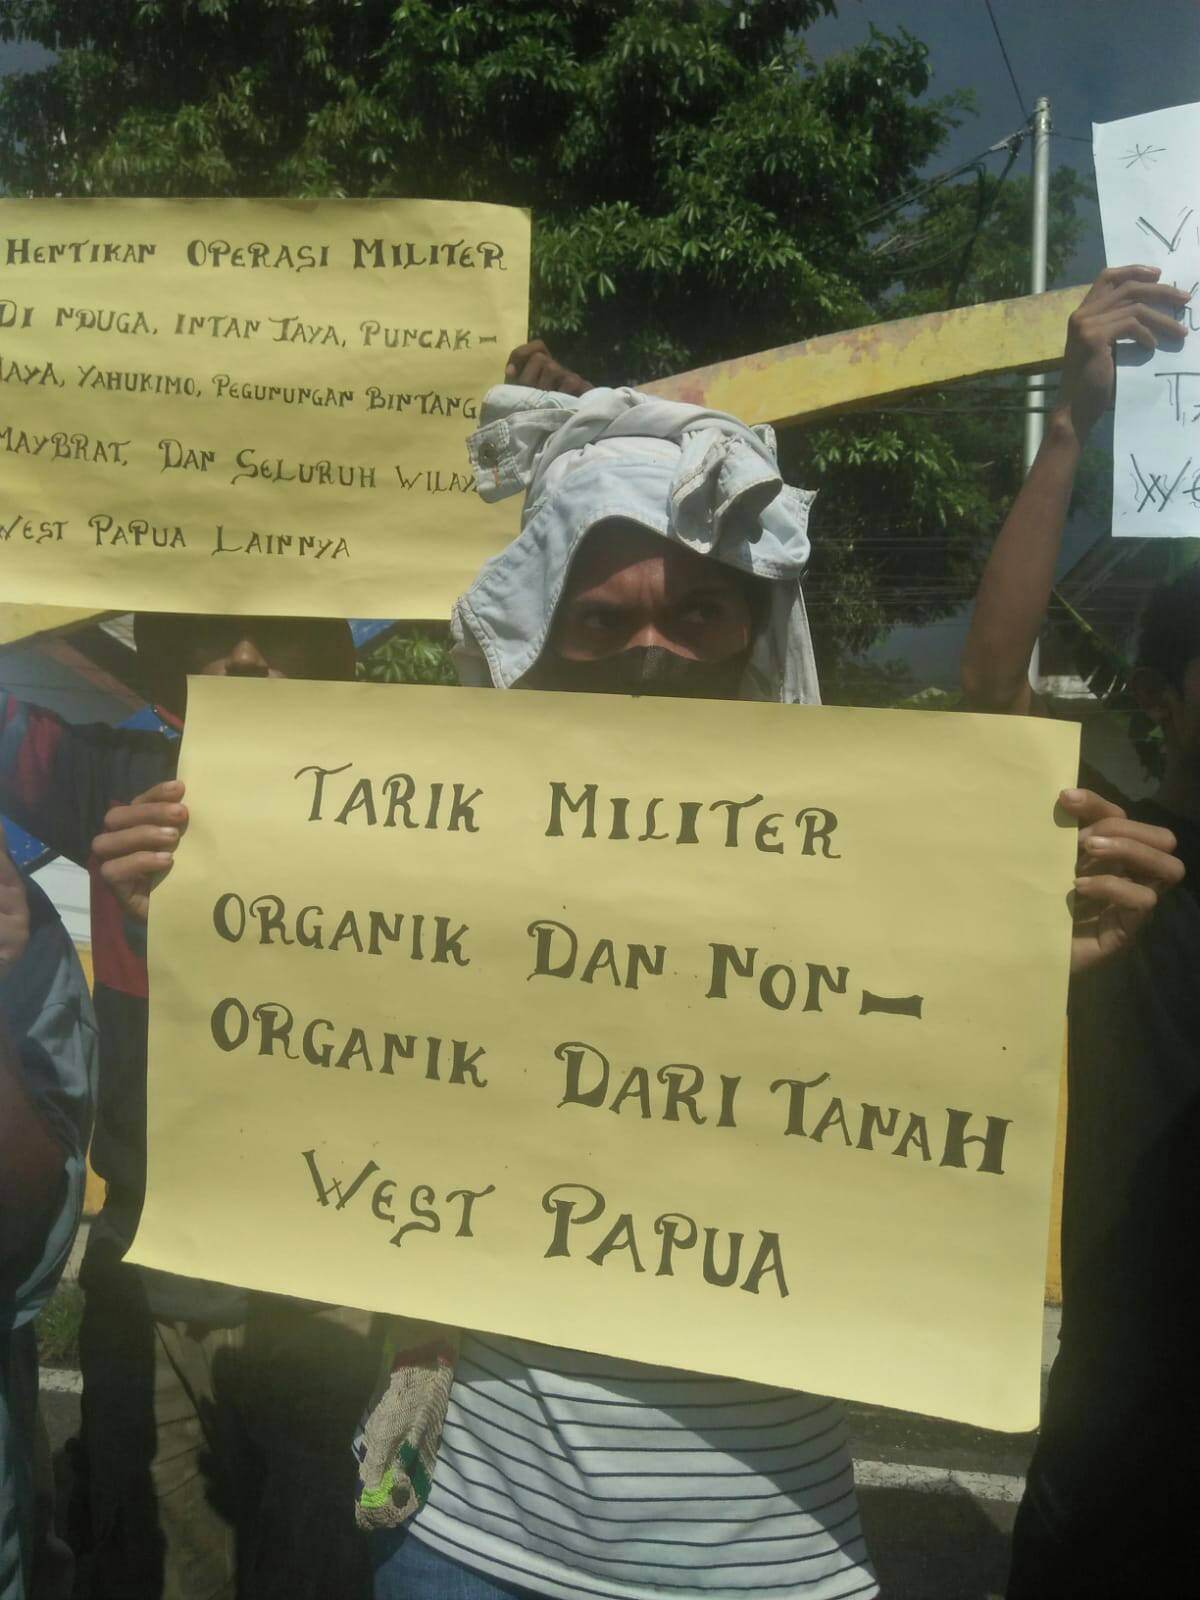 HENTIKAN OPERASI MILITER
DI NDUGA, INTAN JAYA, PUNCAK-
JAYA, YAHUKIMO, PEGUNUNGAN BINTANG
MAYBRAT, DAN SELURUH WILAY
WEST PAPUA LAINNYA
TARIK MILITER
ORGANIK DAN NON-
ORGANIK DARI TANAH
WEST PAPUA